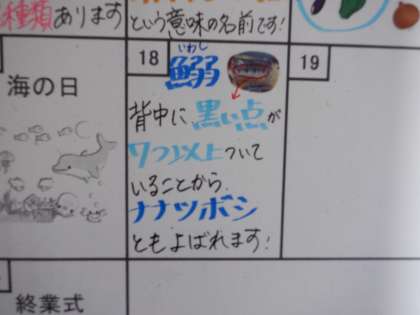 種類あります
という意味の名前です!
海の日
18
いわし
鰯
背中に、黒い点が
7つ以上ついて
いることから
ナナツボシ
ともよばれます!
19
終業式